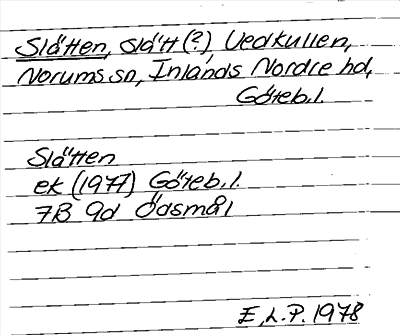 Slätten, slätt (?), Vedkullen,
Norums sn, Inlands Nordre hd,
Göteb. l.
Slätten
ek (1977) Göteb. l.
7B 9d Ödsmål
E, L.P. 1978